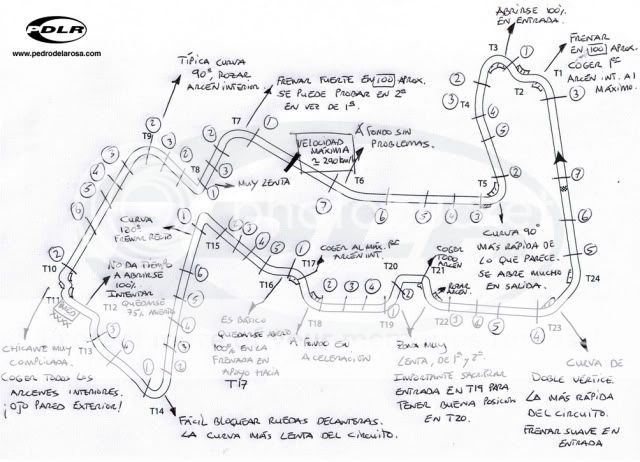 PDLR
www.pedrodelarosa.com
TÍPICA CURVA
90º, ROZAR
ARCÉN INTERIOR
T9
T7
FRENAR FUERTE EN 100 APROX.
SE PUEDE PROBAR EN 2ª
EN VEZ DE 1ª.
ABRIRSE 100%
EN ENTRADA.
T3
FRENAR
EN 100 APROX.
COGER 1er
ARCÉN INT. AL
MÁXIMO.
T1
T2
T4
T5
VELOCIDAD
MÁXIMA
≃ 290 km/h
A FONDO SIN
PROBLEMAS.
T6
T8
MUY LENTA
CURVA
120º
FRENAR RECTO
T15
CURVA 90º
MÁS RÁPIDA DE
LO QUE PARECE.
SE ABRE MUCHO
EN SALIDA.
T10
T11
NO DA TIEMPO
A ABRIRSE
100%
INTENTAR
QUEDARSE
75% ABIERTO
T12
T13
T16
T17
COGER AL MÁX. 1er
ARCÉN INT.
T20
COGER
TODO
ARCÉN
T21
ROZAR
ARCÉN
T24
T18
T19
T22
T23
CHICANE MUY
COMPLICADA.
COGER TODOS LOS
ARCENES INTERIORES.
¡OJO PARED EXTERIOR!
ES BÁSICO
QUEDARSE ABIERTO
100% EN LA
FRENADA EN
APOYO HACIA
T17
A FONDO EN
ACELERACIÓN
ZONA MUY
LENTA, DE 1ª Y 2ª.
IMPORTANTE SACRIFICAR
ENTRADA EN T19 PARA
TENER BUENA POSICIÓN
EN T20.
CURVA DE
DOBLE VÉRTICE.
LA MÁS RÁPIDA
DEL CIRCUITO.
FRENAR SUAVE EN
ENTRADA
T14
FÁCIL BLOQUEAR RUEDAS DELANTERAS.
LA CURVA MÁS LENTA DEL CIRCUITO.